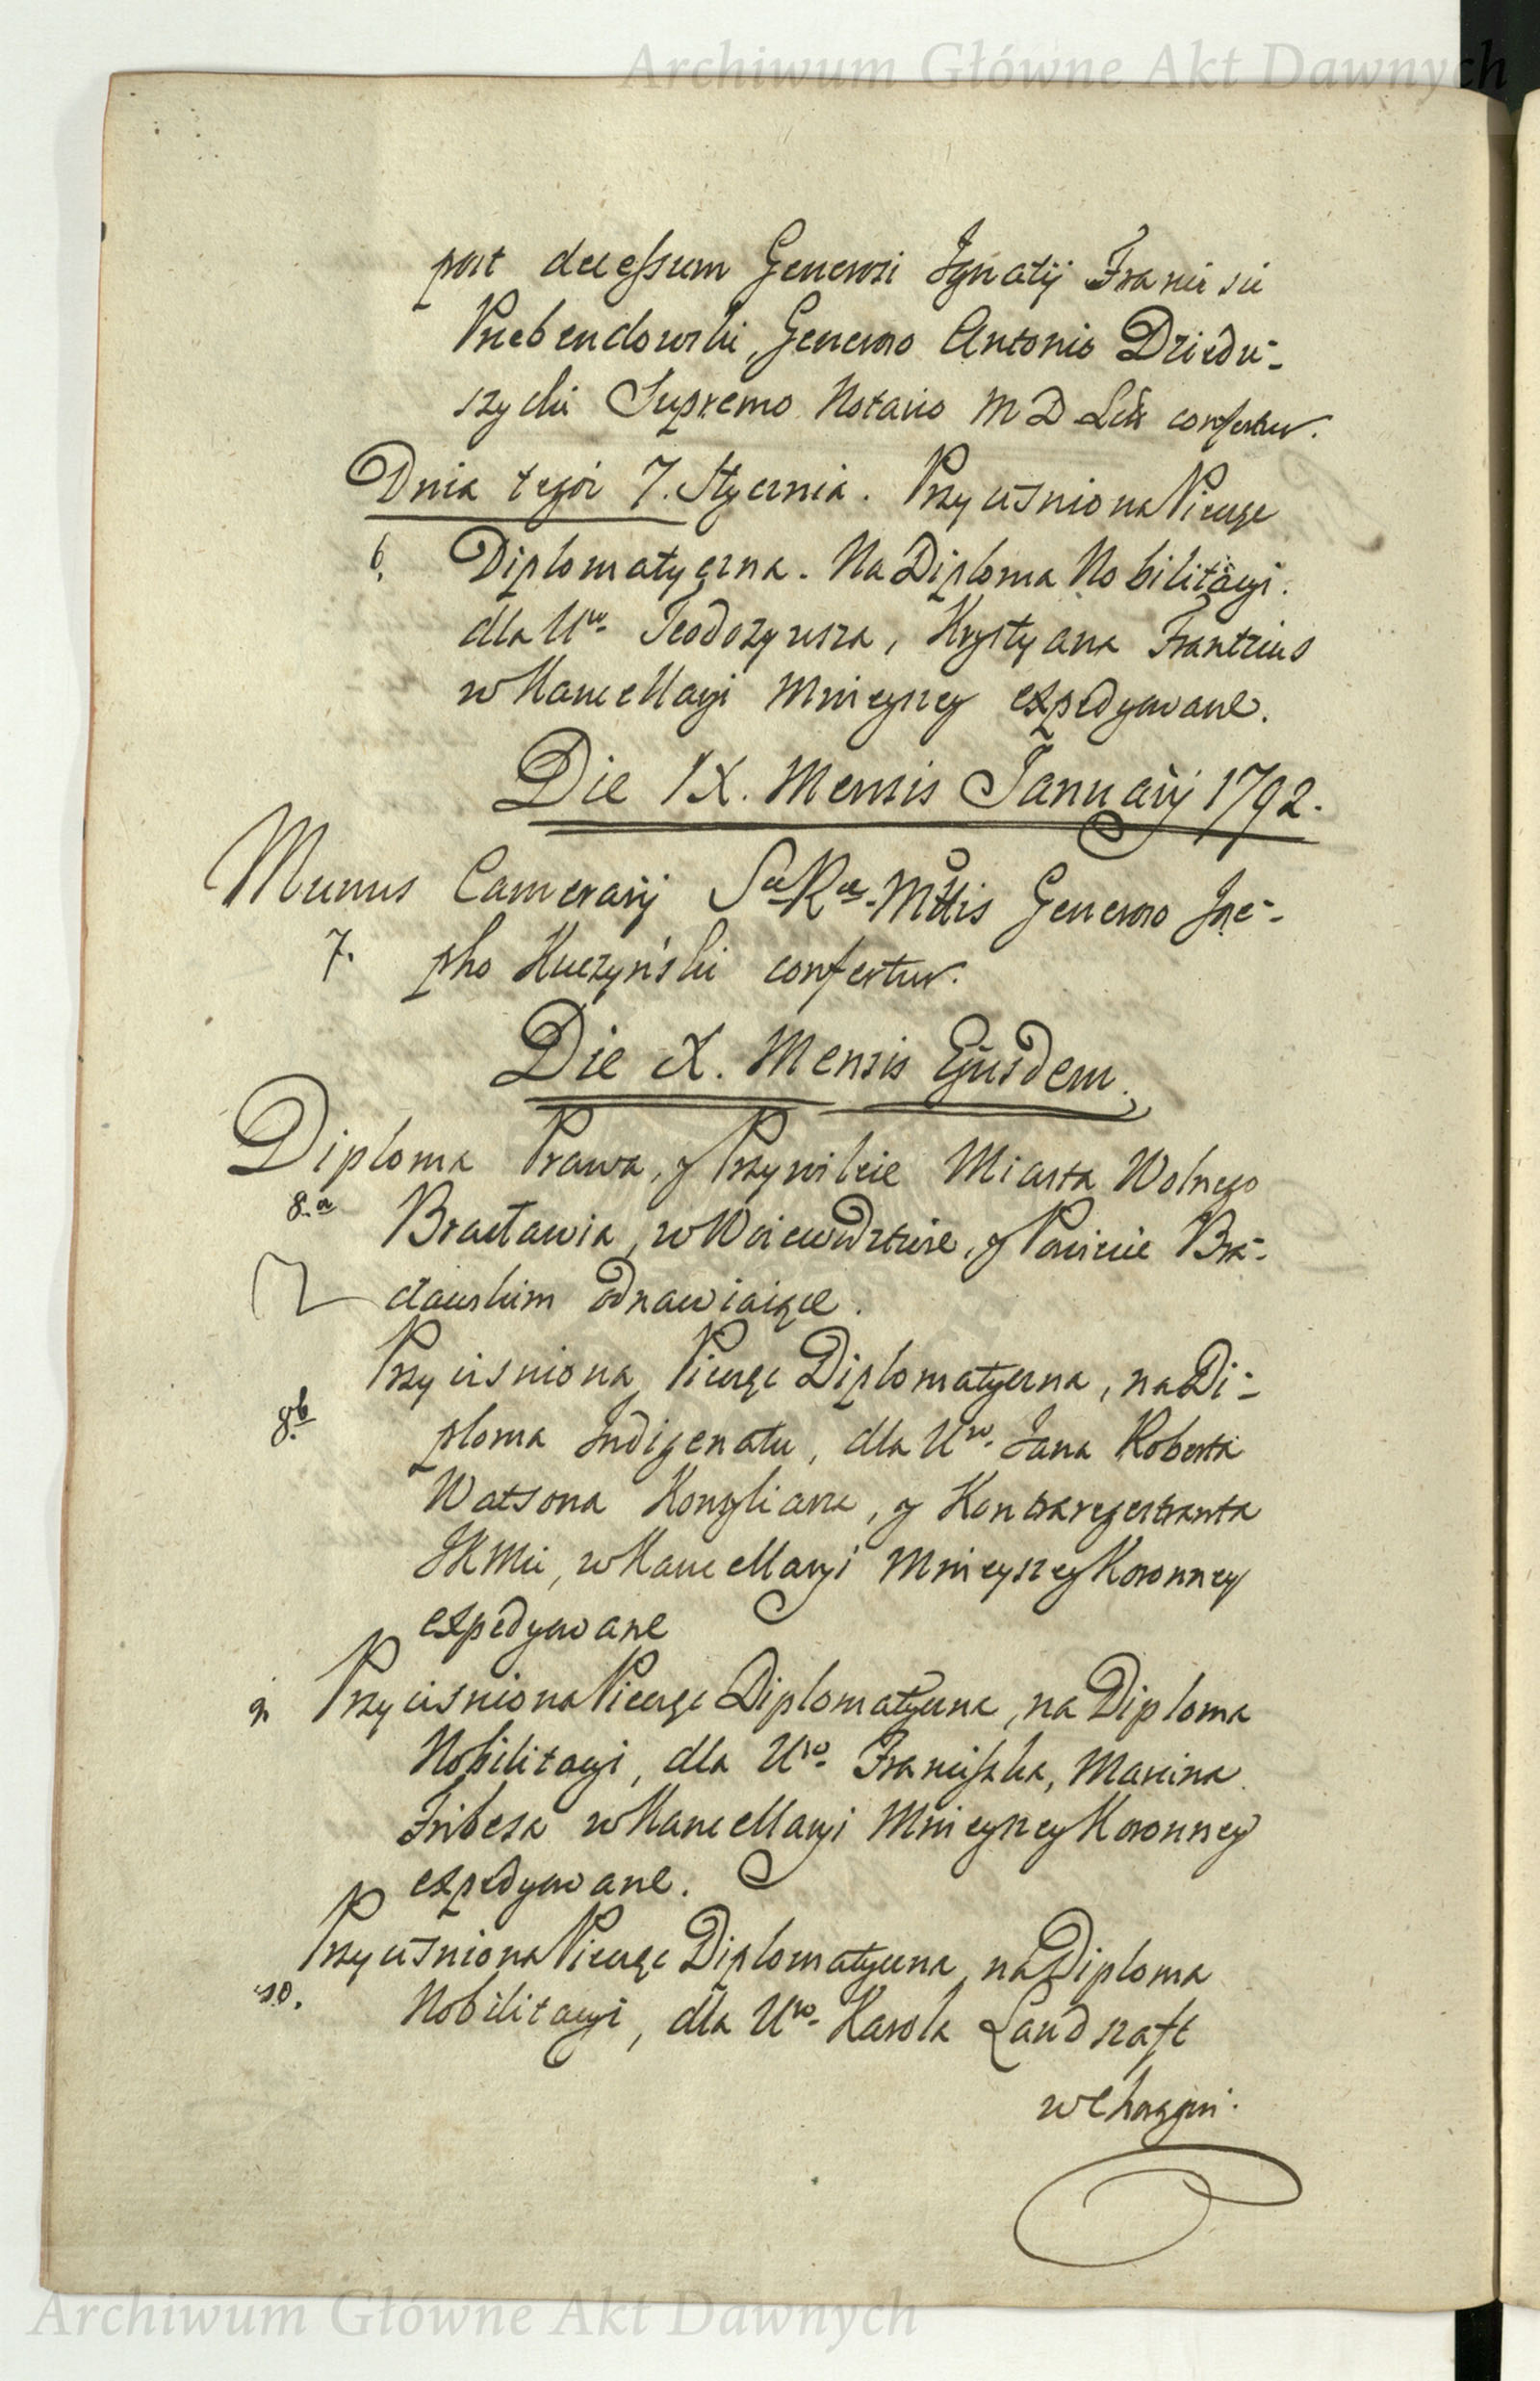 Archiwum Główne Akt Dawnych
post decessum Generosi Ignatij Francisci
Przebendowski, Generoso Antonio Dziedu-
szycki Supremo Notario M D Litt confertur.
Dnia tegoż 7. Stycznia. Przyciśniona Pieczęć
6. Diplomatyczna. Na Diploma Nobilitacyi.
dla Uro. Teodozyusza, Krystyana Frantzius
w Kancellaryi Mnieyszey expedyowane.
Die IX. Mensis Januarij 1792.
Munus Camerarij Sae Rae Mttis Generoso Jose-
7. pho Kuczyński confertur.
Die X. Mensis Ejusdem.
Diploma Prawa, y Przywileie Miasta Wolnego
8.a Bracławia, w Woiewodztwie, y Powiecie Bra-
cławskim odnawiaiące.
Przyciśniona Pieczęć Diplomatyczna, na Di-
8.b ploma Indigenatu, dla Uro. Jana Roberta
Watsona Konsyliarza, y Kontraregestranta
JKMci, w Kancellaryi Mnieyszey Koronney
expedyowane
9. Przyciśniona Pieczęć Diplomatyczna, na Diploma
Nobilitacyi, dla Uro. Franciszka, Marcina
Fribesa w Kancellaryi Mnieyszey Koronney
expedyowane.
Przyciśniona Pieczęć Diplomatyczna, na Diploma
10. Nobilitacyi, dla Uro. Karola Landszaft
w Chorągwi
Archiwum Główne Akt Dawnych